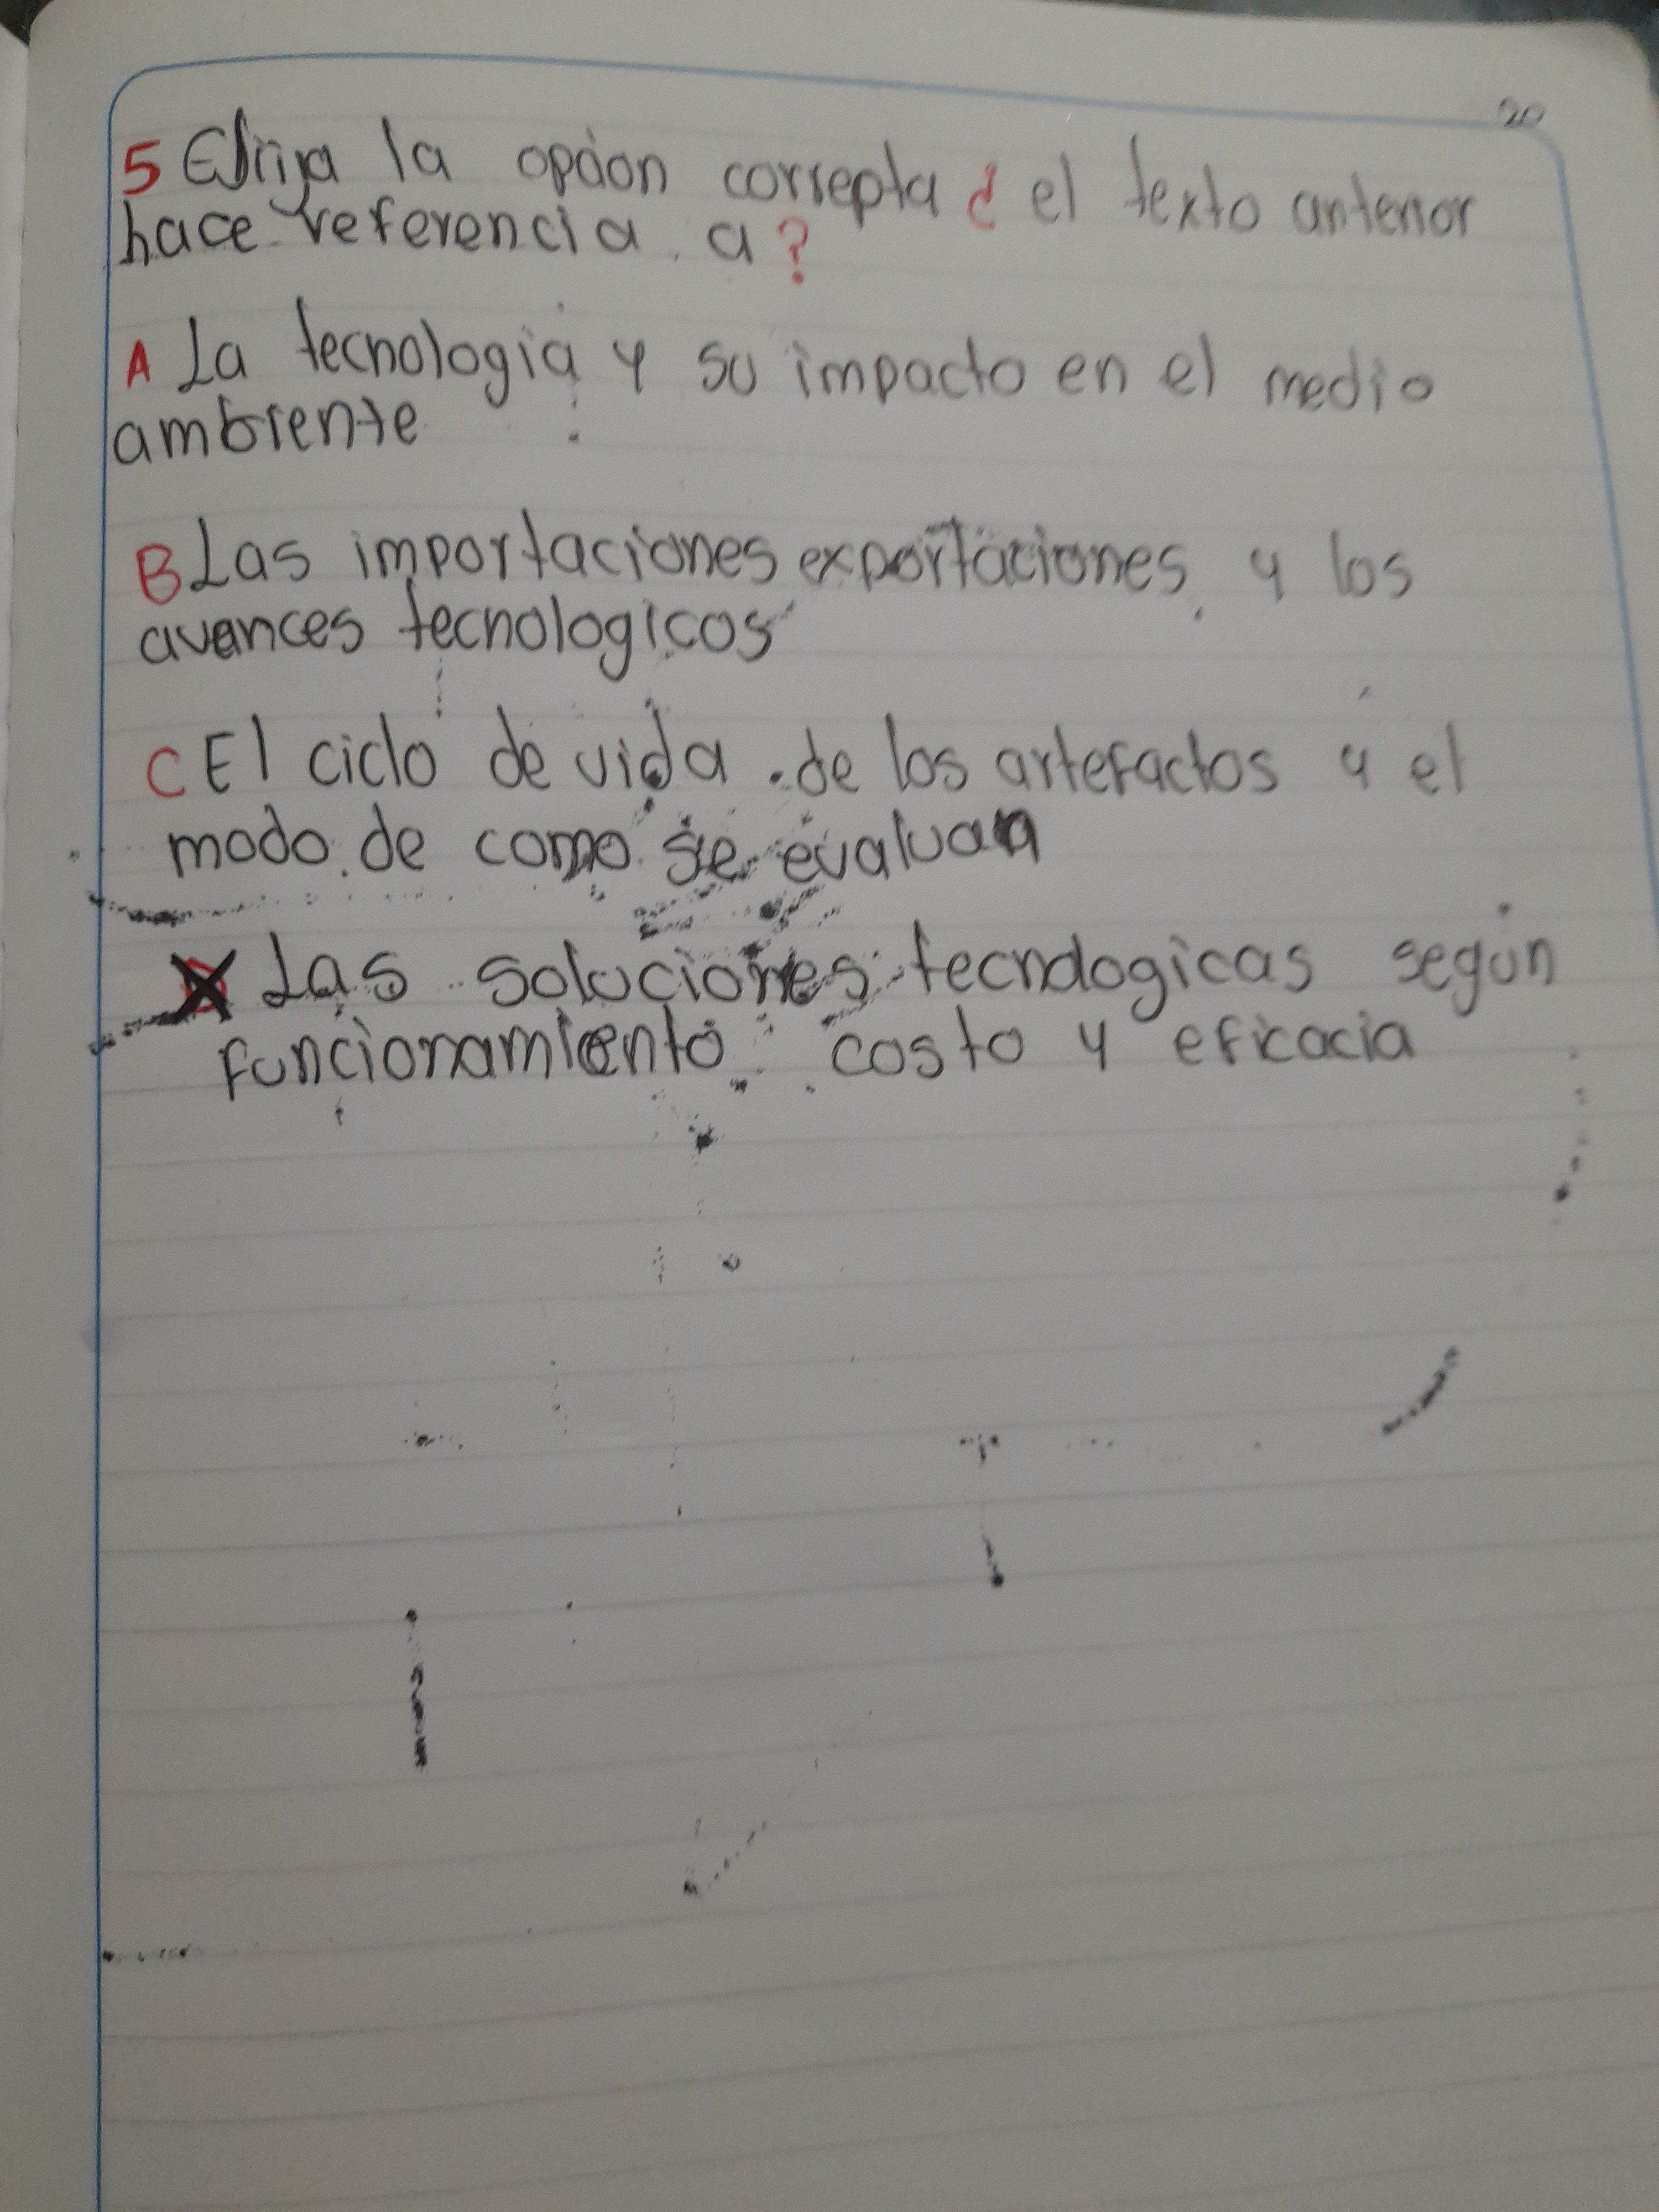 20
5 Elija la opcion correpta ¿ el texto anterior
hace referencia a?
A La tecnologia y su impacto en el medio
ambiente
B Las importaciones exportaciones y los
avances tecnologicos
C El ciclo de vida de los artefactos y el
modo de como se evaluan
D Las soluciones tecnologicas según
funcionamiento costo y eficacia